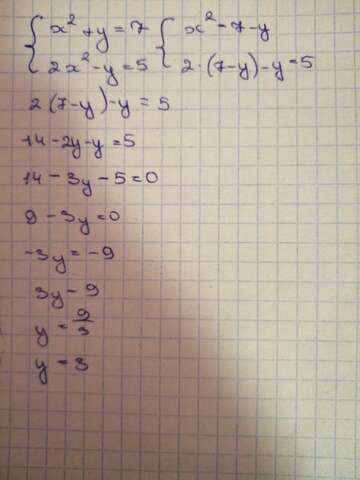 { x² + y = 7 { x² = 7 - y
{ 2x² - y = 5 { 2·(7-y) - y = 5
2(7-y) - y = 5
14 - 2y - y = 5
14 - 3y - 5 = 0
9 - 3y = 0
-3y = -9
3y - 9
y = 9/3
y = 3